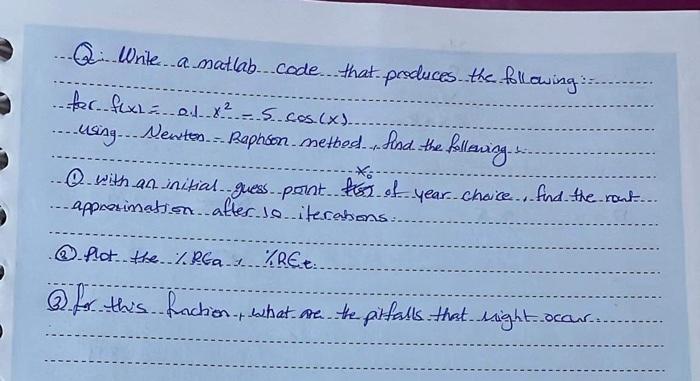 Q: Write a matlab code that produces the following:-
for f(x) = 0.1 x² - 5 cos(x)
using Newton-Raphson method, find the following:
① with an initial guess point x₀ of year choice, find the root
approximation after 10 iterations.
② Plot the %REa, %REt.
③ for this function, what are the pitfalls that might occur.